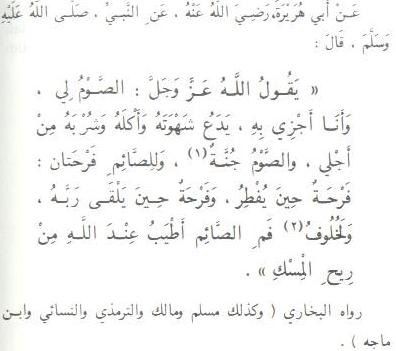 عَـنْ أَبِي هُرَيْرَةَ، رَضِـيَ اللهُ عَنْهُ ، عَن ِ النَّبِـيِّ ، صَلَّـى اللهُ عَلَيْهِ
وَسَلَّمَ ، قَالَ :
« يَقُـولُ اللَّـهُ عَـزَّ وَجَلَّ : الصَّـوْمُ لِي ،
وَأَنَـا أَجْزِي بِهِ ، يَدَعُ شَهْوَتَهُ وَأَكْلَهُ وَشُرْبَهُ مِنْ
أَجْلِي ، والصَّوْمُ جُنَّـةٌ (١) ، وَلِلصَّائِـم ِ فَرْحَتَان :
فَرْحَةٌ حِينَ يُفْطِرُ ، وَفَرْحَةٌ حِيـنَ يَلْقَـى رَبَّـهُ ،
وَلَخُلُوفُ (٢) فَـم ِ الصَّائِم أَطْيَبُ عِنْـدَ اللَّـهِ مِنْ
رِيح ِ الْمِسْكِ » .
رواه البخاري ( وكذلك مسلم ومالك والترمذي والنسائي وابـن
ماجه ) .